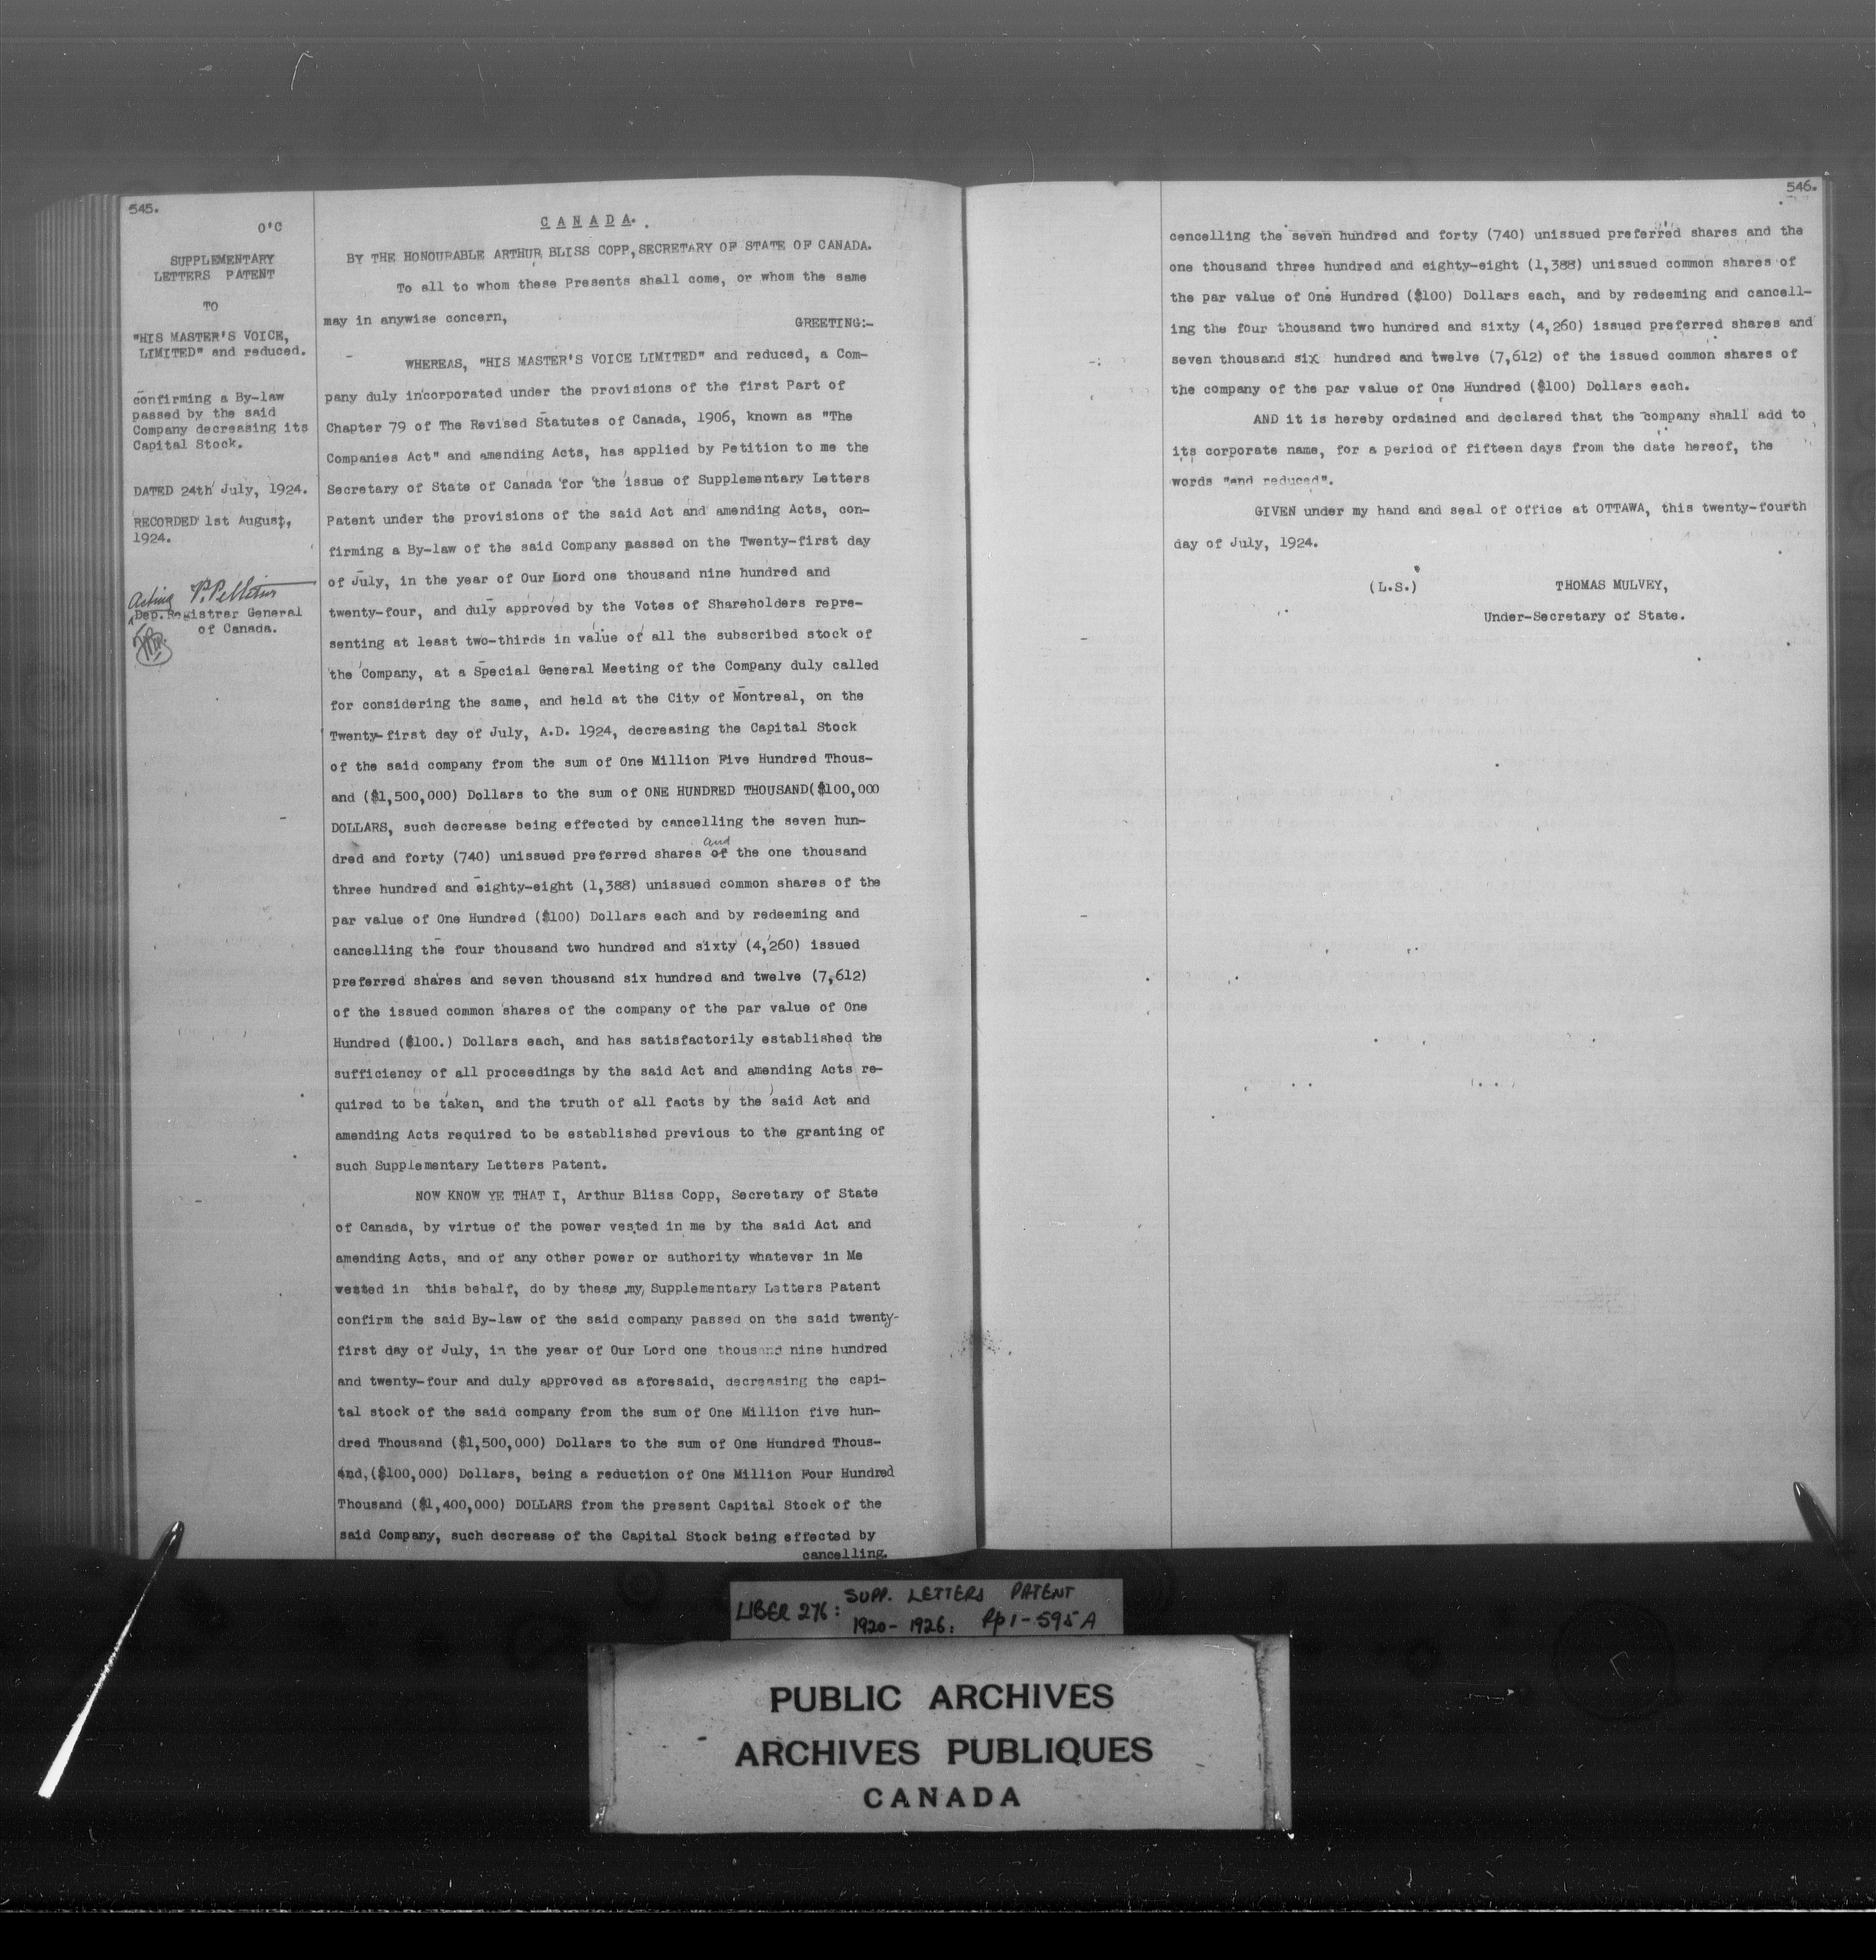 545.
O'C
SUPPLEMENTARY
LETTERS PATENT
TO
"HIS MASTER'S VOICE,
LIMITED" and reduced.
confirming a By-law
passed by the said
Company decreasing its
Capital Stock.
DATED 24th July, 1924.
RECORDED 1st August,
1924.
Acting P. Pelletier
Dep. Registrar General
of Canada.
CANADA.
BY THE HONOURABLE ARTHUR BLISS COPP, SECRETARY OF STATE OF CANADA.
To all to whom these Presents shall come, or whom the same
may in anywise concern, GREETING:-
WHEREAS, "HIS MASTER'S VOICE LIMITED" and reduced, a Com-
pany duly incorporated under the provisions of the first Part of
Chapter 79 of The Revised Statutes of Canada, 1906, known as "The
Companies Act" and amending Acts, has applied by Petition to me the
Secretary of State of Canada for the issue of Supplementary Letters
Patent under the provisions of the said Act and amending Acts, con-
firming a By-law of the said Company passed on the Twenty-first day
of July, in the year of Our Lord one thousand nine hundred and
twenty-four, and duly approved by the Votes of Shareholders repre-
senting at least two-thirds in value of all the subscribed stock of
the Company, at a Special General Meeting of the Company duly called
for considering the same, and held at the City of Montreal, on the
Twenty-first day of July, A.D. 1924, decreasing the Capital Stock
of the said company from the sum of One Million Five Hundred Thous-
and ($1,500,000) Dollars to the sum of ONE HUNDRED THOUSAND($100,000
DOLLARS, such decrease being effected by cancelling the seven hun-
dred and forty (740) unissued preferred shares of and the one thousand
three hundred and eighty-eight (1,388) unissued common shares of the
par value of One Hundred ($100) Dollars each and by redeeming and
cancelling the four thousand two hundred and sixty (4,260) issued
preferred shares and seven thousand six hundred and twelve (7,612)
of the issued common shares of the company of the par value of One
Hundred ($100.) Dollars each, and has satisfactorily established the
sufficiency of all proceedings by the said Act and amending Acts re-
quired to be taken, and the truth of all facts by the said Act and
amending Acts required to be established previous to the granting of
such Supplementary Letters Patent.
NOW KNOW YE THAT I, Arthur Bliss Copp, Secretary of State
of Canada, by virtue of the power vested in me by the said Act and
amending Acts, and of any other power or authority whatever in Me
vested in this behalf, do by these my Supplementary Letters Patent
confirm the said By-law of the said company passed on the said twenty-
first day of July, in the year of Our Lord one thousand nine hundred
and twenty-four and duly approved as aforesaid, decreasing the capi-
tal stock of the said company from the sum of One Million five hun-
dred Thousand ($1,500,000) Dollars to the sum of One Hundred Thous-
and, ($100,000) Dollars, being a reduction of One Million Four Hundred
Thousand ($1,400,000) DOLLARS from the present Capital Stock of the
said Company, such decrease of the Capital Stock being effected by
cancelling.
546.
cencelling the seven hundred and forty (740) unissued preferred shares and the
one thousand three hundred and eighty-eight (1,388) unissued common shares of
the par value of One Hundred ($100) Dollars each, and by redeeming and cancell-
ing the four thousand two hundred and sixty (4,260) issued preferred shares and
seven thousand six hundred and twelve (7,612) of the issued common shares of
the company of the par value of One Hundred ($100) Dollars each.
AND it is hereby ordained and declared that the company shall add to
its corporate name, for a period of fifteen days from the date hereof, the
words "and reduced".
GIVEN under my hand and seal of office at OTTAWA, this twenty-fourth
day of July, 1924.
(L.S.) THOMAS MULVEY,
Under-Secretary of State.
LIBER 276: SUPP. LETTERS PATENT
1920- 1926: Pp 1-595A
PUBLIC ARCHIVES
ARCHIVES PUBLIQUES
CANADA